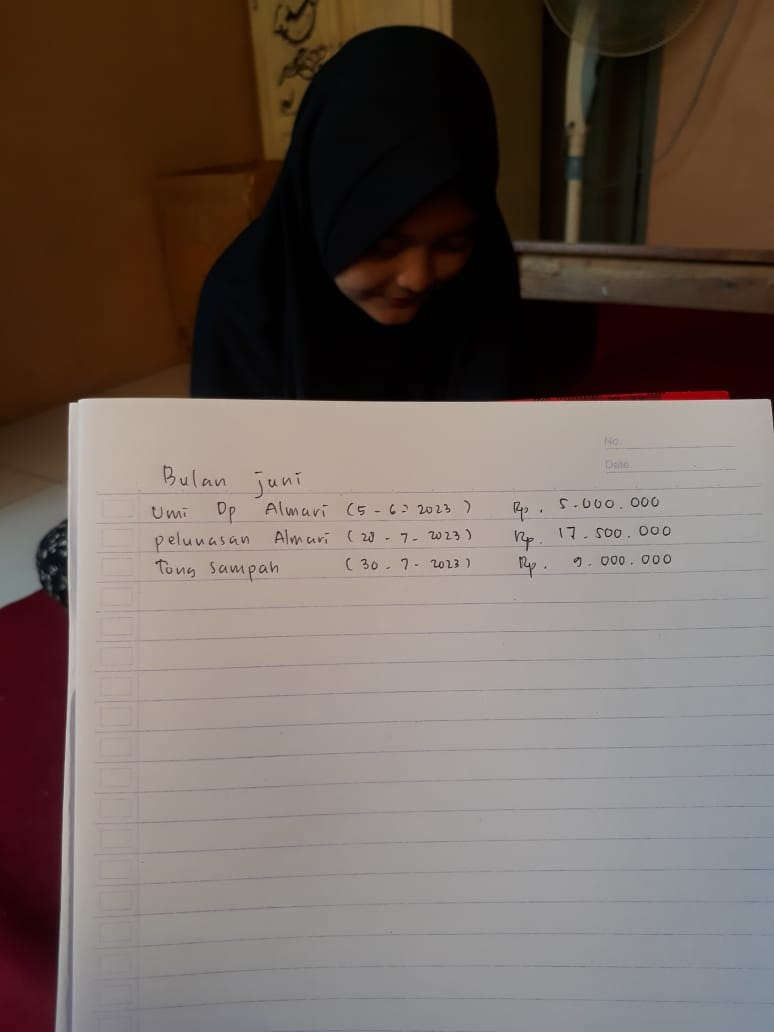 No.
Date
Bulan juni
Umi Dp Almari (5-6-2023) Rp. 5.000.000
pelunasan Almari (20-7-2023) Rp. 17.500.000
Tong sampah (30.7-2023) Rp. 9.000.000